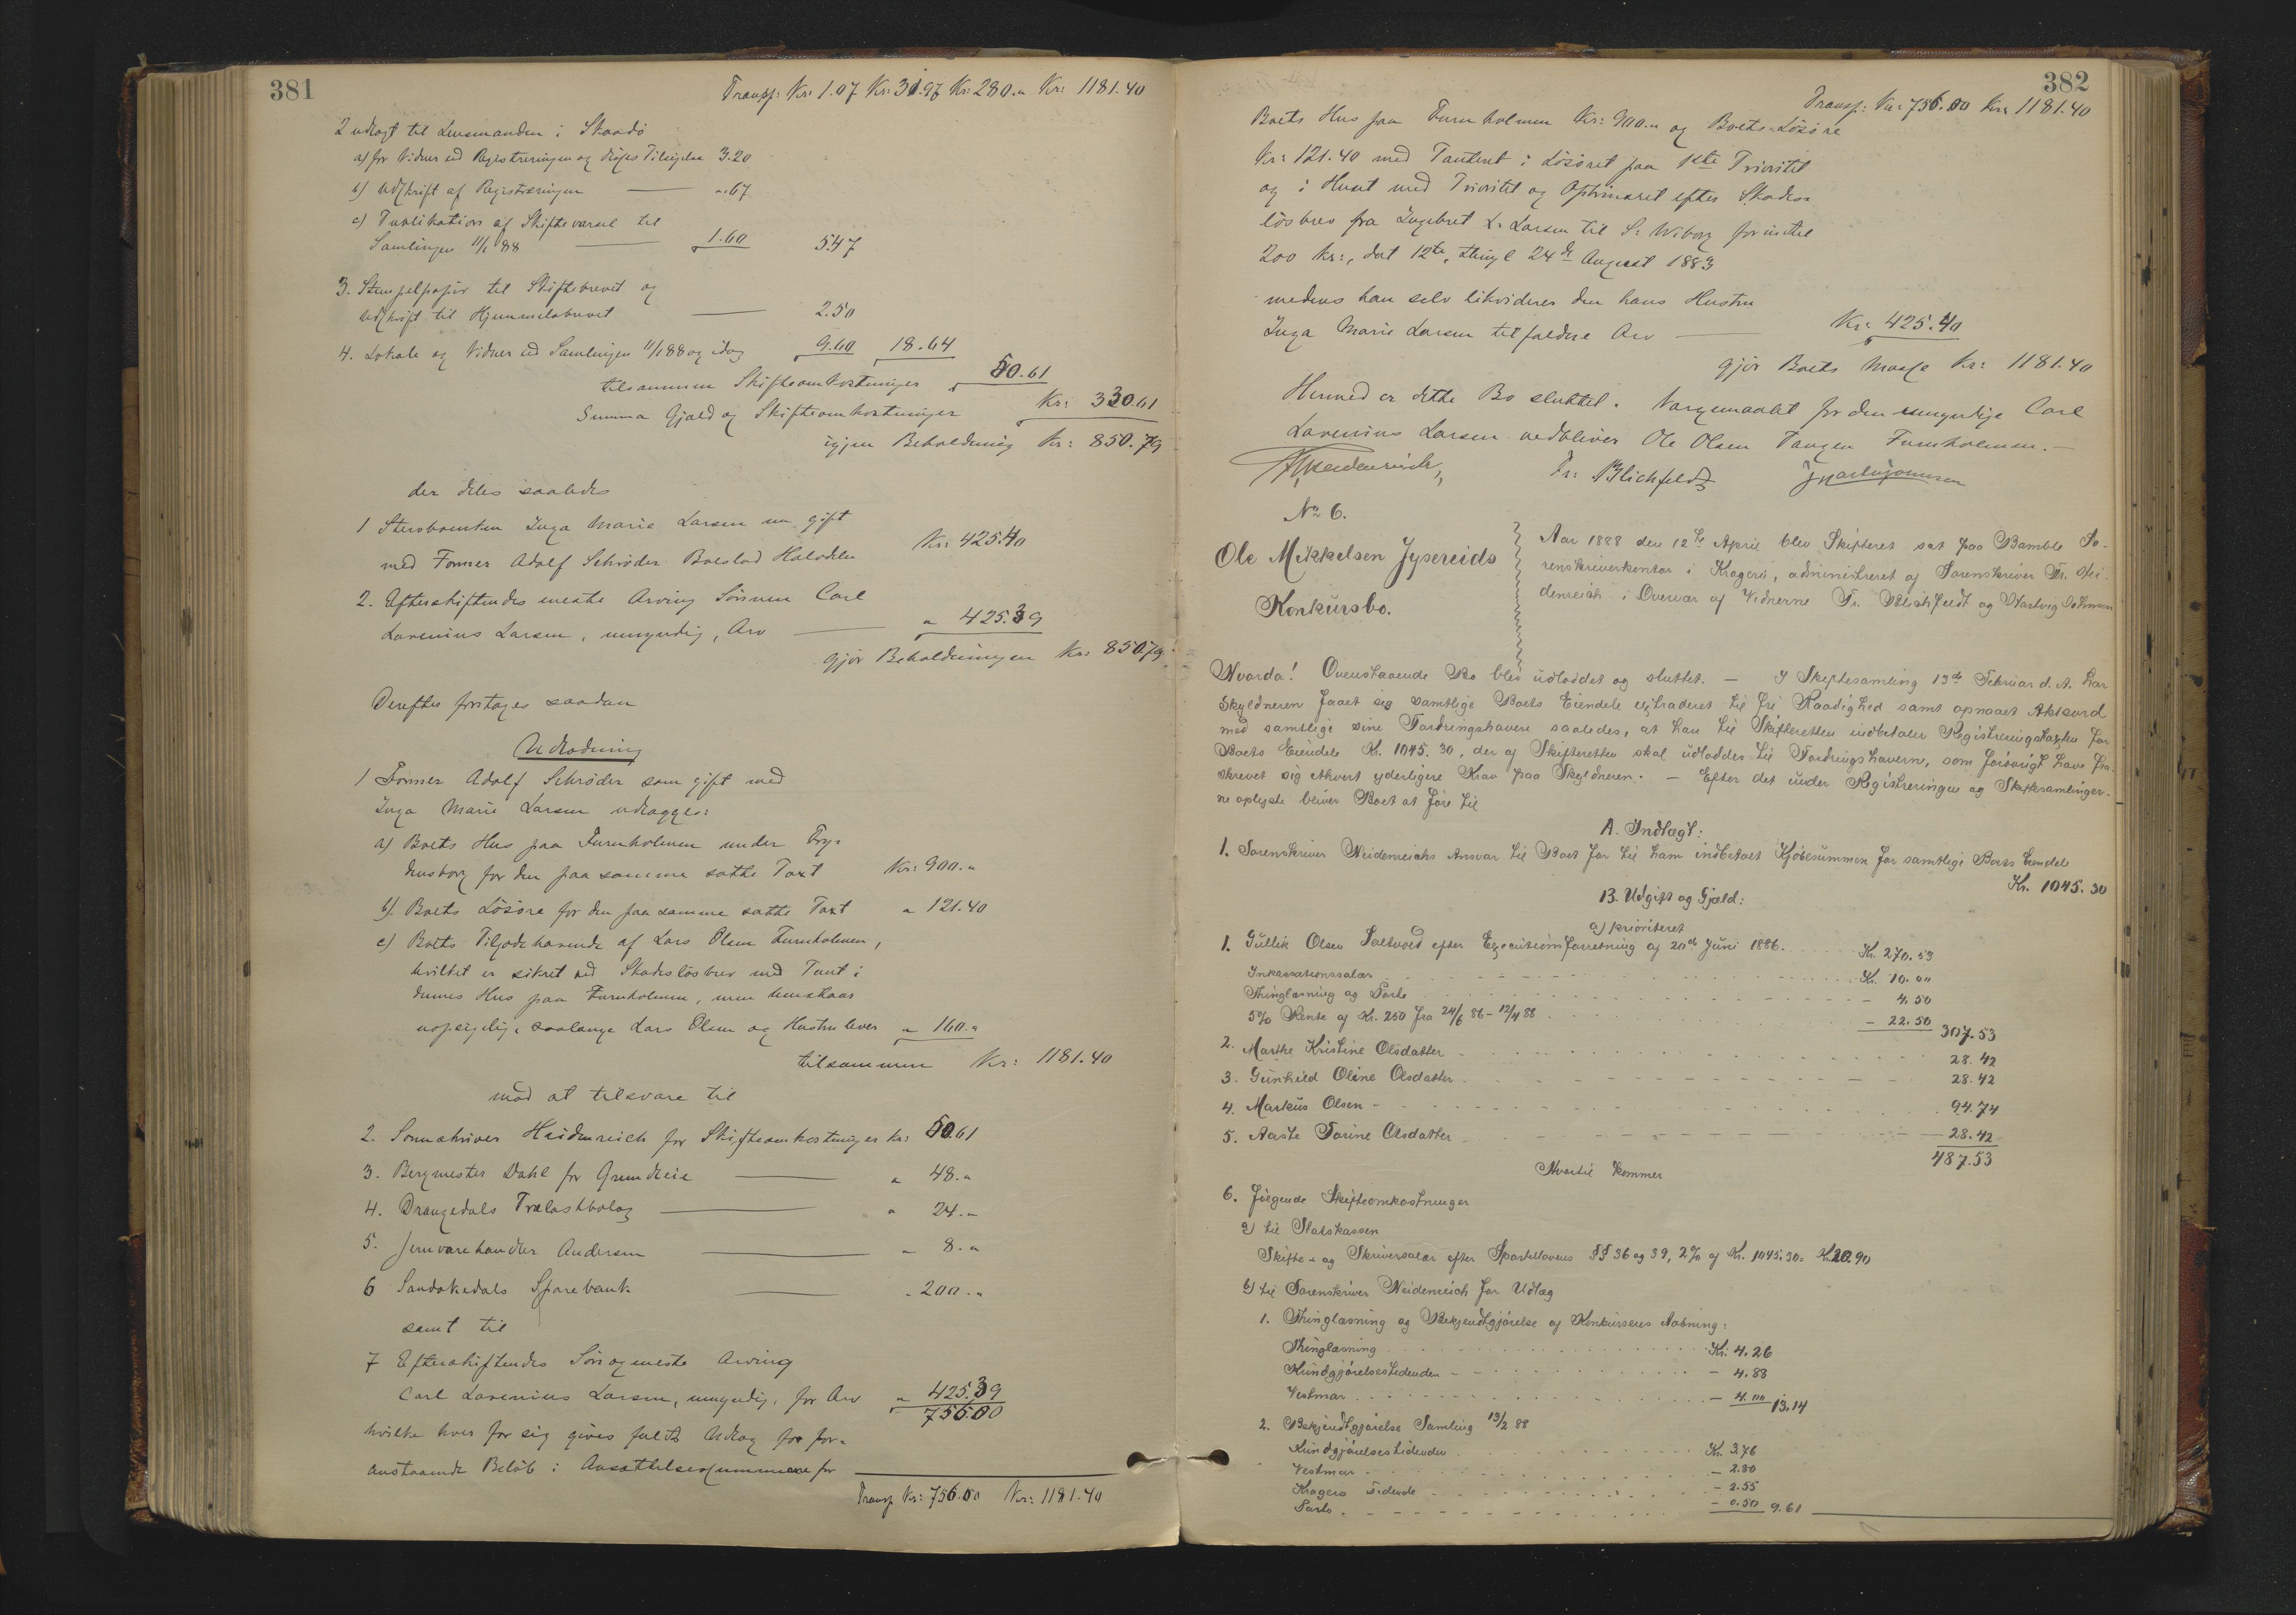 381
Transp: Kr: 1.07 Kr: 31.97 Kr: 280.„ Kr: 1181.40
2 udlagt til Lensmanden i Skaadø
a) for Vidner ved Registreringen og disses Tilsigelse 3.20
b) Udskrift af Registreringen „.67
c) Publikation af Skiftevarsel til
Samlingen 11/1 88 1.60 5.47
3. Stempelpapir til Skiftebrevet og
Udskrift til Hjemmelsbrevet 2.50
4. Lokale og Vidner ved Samlingen 11/1 88 og idag 9.60 18.64
tilsammen Skifteomkostninger 50.61
Summa Gjæld og Skifteomkostninger Kr: 330.61
igjen Beholdning Kr: 850.79
der deles saaledes
1 Stervboenken Inga Marie Larsen nu gift
med Former Adolf Schrøder Boeslod Halvdelen Kr: 425.40
2. Efterskiftendes eneste Arving Sønnen Carl
Lavenius Larsen, umyndig, Arv „ 425.39
gjør Beholdningen Kr: 850.79
Derefter foretages saadan
Udlodning
1 Former Adolf Schrøder som gift med
Inga Marie Larsen udlægges:
a) Boets Hus paa Furuholmen under Fry-
densborg for den paa samme satte Taxt Kr: 900.„
b) Boets Løsøre for den paa samme satte Taxt „ 121.40
c) Boets Tilgodehavende af Lars Olsen Furuholmen,
hvilket er sikret ved Skadesløsbrev med Pant i
dennes Hus paa Furuholmen, men henstaar
uopsigelig, saalænge Lars Olsen og Hustru lever „ 160.„
tilsammen Kr: 1181.40
mod at tilsvare til
2. Sorenskriver Heidenreich for Skifteomkostninger Kr: 50.61
3. Bergmester Dahl for Grundleie „ 48.„
4. Drangedals Trælastbolag „ 24.„
5. Jernvarehandler Andersen „ 8.„
6 Sandøkedals Sparebank „ 200.„
samt til
7 Efterskiftendes Søn og eneste Arving
Carl Lavenius Larsen, umyndig, for Arv „ 425.39
756.00
hvilke hver for sig gives fuldt Udlæg for for-
anstaaende Beløb i Ansættelsessummerne for
Transp Kr: 756.00 Kr: 1181.40
382
Transp: Kr: 756.00 Kr: 1181.40
Boets Hus paa Furuholmen Kr: 900.„ og Boets Løsøre
Kr: 121.40 med Panteret i Løsøret paa 1ste Prioritet
og i Huset med Prioritet og Optrinsret efter Skades-
løsbrev fra Ingebret L. Larsen til S. Wiborg for indtil
200 Kr:, dat 12te, thingl 24de August 1883
medens han selv likviderer den hans Hustru
Inga Marie Larsen tilfaldne Arv Kr: 425.40
gjør Boets Masse Kr: 1181.40
Hermed er dette Bo sluttet. Værgemaalet for den umyndige Carl
Lavenius Larsen vedbliver Ole Olsen Tangen Furuholmen.—
Heidenreich Fr: Blichfeldt
No 6.
Ole Mikkelsen Jysereids
Konkursbo.
Aar 1888 den 12te April blev Skifteret sat paa Bamble So-
renskriverkontor i Kragerø, administreret af Sorenskriver Fr. Hei-
denreich i Overvær af Vidnerne Fr. Blichfeldt og Hartvig Johnsen
Hvorda! Ovenstaaende Bo blev udloddet og sluttet. — I Skiftesamling 13de Februar d. A. har
Skyldneren faaet sig samtlige Boets Eiendele extraderet til fri Raadighed samt opnaaet Akkord
med samtlige sine Fordringshavere saaledes, at han til Skifteretten indbetaler Registreringstaxten for
Boets Eiendele Kr. 1045.30, der af Skifteretten skal udloddes til Fordringshaverne, som forøvrigt have fra-
skrevet sig ethvert yderligere Krav paa Skyldneren. — Efter det under Registreringen og Skiftesamlinger-
ne oplyste bliver Boet at føre til
A. Indtægt:
1. Sorenskriver Heidenreichs Ansvar til Boet for til ham indbetalt Kjøbesummen for samtlige Boets Eiendele
Kr. 1045.30
B. Udgift og Gjæld:
a) prioriteret
1. Gullik Olsen Saltvold efter Executionsforretning af 20de Juni 1886. Kr. 270.53
Inkassationssalær Kr. 10.00
Thinglæsning og Porto – 4.50
5% Rente af Kr. 250 fra 24/6 86 – 12/4 88 – 22.50 307.53
2. Marthe Kristine Olsdatter 28.42
3. Gunhild Oline Olsdatter 28.42
4. Markus Olsen – 94.74
5. Aaste Torine Olsdatter 28.42
487.53
Hvortil kommer
6. følgende Skifteomkostninger
a) til Statskassen
Skifte- og Skriversalær efter Sportellovens §§ 36 og 39, 2% af Kr. 1045.30 = Kr. 20.90
b) til Sorenskriver Heidenreich for Udlæg
1. Thinglæsning og Bekjendtgjørelse af Konkursens Aabning:
Thinglæsning Kr. 4.26
Kundgjørelsestidenden – 4.88
Vestmar – 4.00 13.14
2. Bekjendtgjørelse Samling 13/2 88
Kundgjørelsestidenden Kr. 3.76
Vestmar – 2.80
Kragerø Tidende – 2.55
Porto – 0.50 9.61